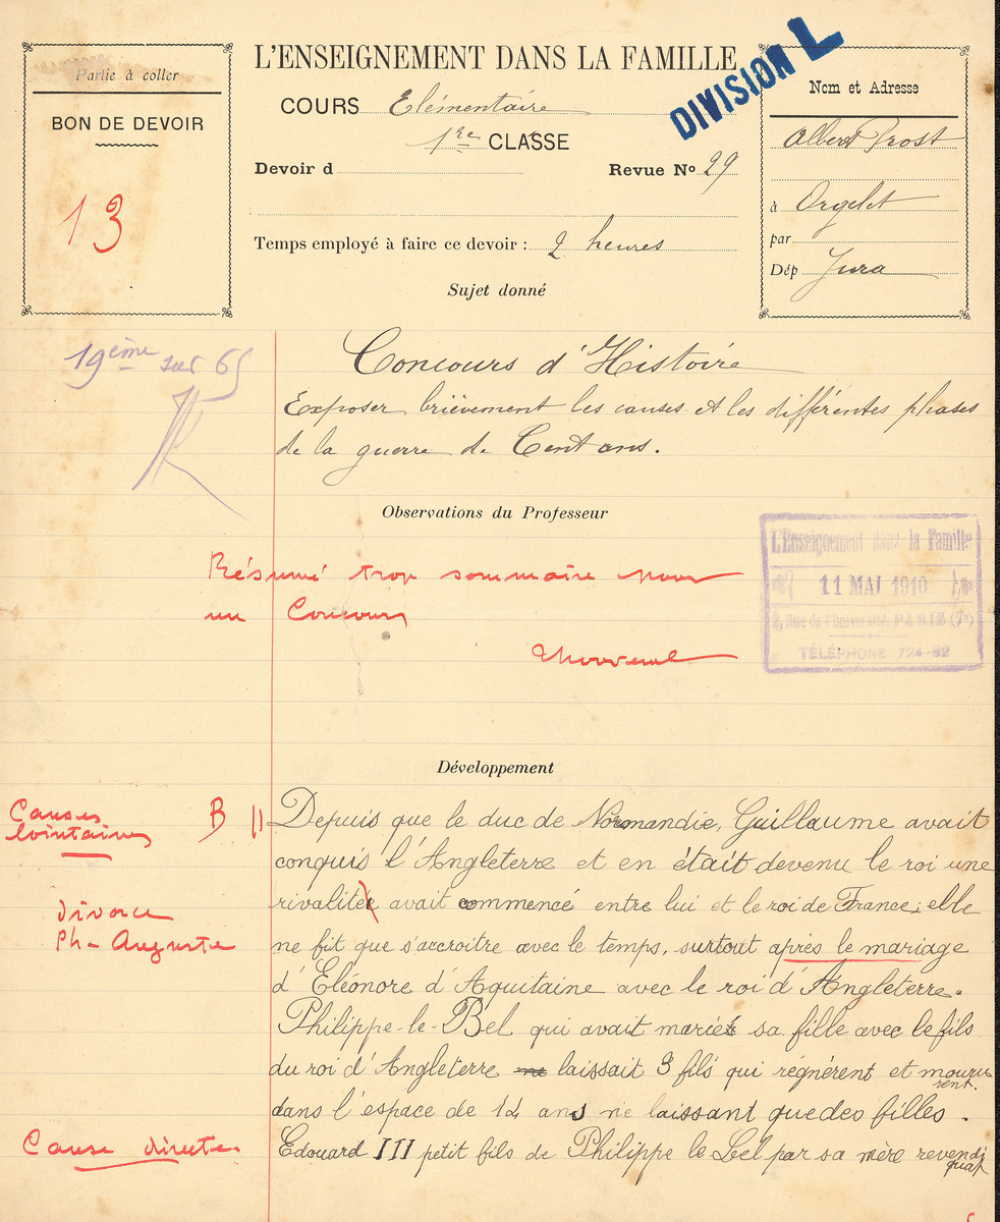 Partie à coller
BON DE DEVOIR
13
L'ENSEIGNEMENT DANS LA FAMILLE
COURS Elémentaire
1re CLASSE
Devoir d
Revue No 29
Temps employé à faire ce devoir : 2 heures
DIVISION L
Nom et Adresse
Albert Prost
à Orgelet
par
Dép Jura
Sujet donné
19ème sur 65
Concours d'Histoire
Exposer brièvement les causes et les différentes phases
de la guerre de Cent ans.
Observations du Professeur
Résumé trop sommaire pour
un Concours
L'Enseignement dans la Famille
11 MAI 1910
2, Rue de l'Université, PARIS (7e)
TÉLÉPHONE 724-82
Développement
Causes
lointaines
B
Depuis que le duc de Normandie, Guillaume avait
conquis l'Angleterre et en était devenu le roi une
rivalitée avait commencé entre lui et le roi de France; elle
divorce
Ph- Auguste
ne fit que s'accroitre avec le temps, surtout après le mariage
d'Eléonore d'Aquitaine avec le roi d'Angleterre.
Philippe-le-Bel qui avait marié sa fille avec le fils
du roi d'Angleterre ne laissait 3 fils qui régnérent et mouru
rent.
dans l'espace de 14 ans ne laissant que des filles.
Cause directe
Edouard III petit fils de Philippe le Bel par sa mère revendi
quat